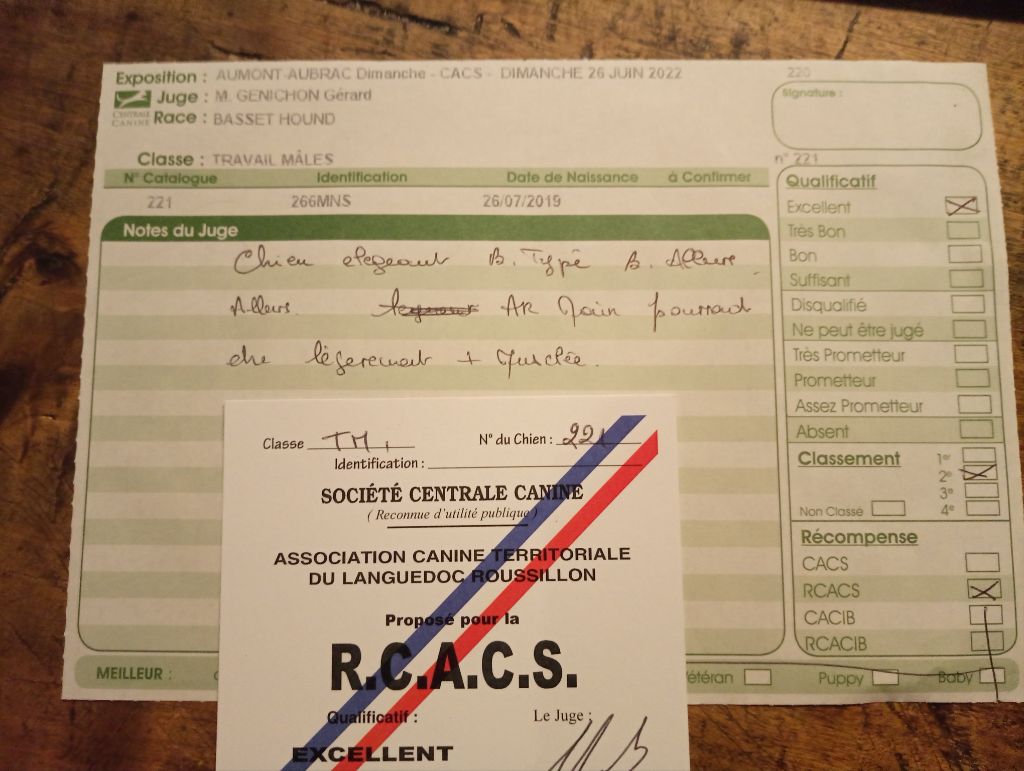 Exposition : AUMONT-AUBRAC Dimanche - CACS - DIMANCHE 26 JUIN 2022
220
Juge : M. GENICHON Gérard
Signature :
CENTRALE
CANINE
Race : BASSET HOUND
Classe : TRAVAIL MÂLES
n° 221
N° Catalogue Identification Date de Naissance à Confirmer
221 266MNS 26/07/2019
Notes du Juge
Chien elegeant B. Typé B. Allure
Alleurs. AR Main pourrait
etre légerement + Musclée.
Qualificatif
Excellent
Très Bon
Bon
Suffisant
Disqualifié
Ne peut être jugé
Très Prometteur
Prometteur
Assez Prometteur
Absent
Classement
1er
2e
3e
Non Classé 4e
Récompense
CACS
RCACS
CACIB
RCACIB
MEILLEUR : Vétéran Puppy Baby
Classe TM. N° du Chien : 221
Identification :
SOCIÉTÉ CENTRALE CANINE
( Reconnue d'utilité publique )
ASSOCIATION CANINE TERRITORIALE
DU LANGUEDOC ROUSSILLON
Proposé pour la
R.C.A.C.S.
Qualificatif : Le Juge :
EXCELLENT